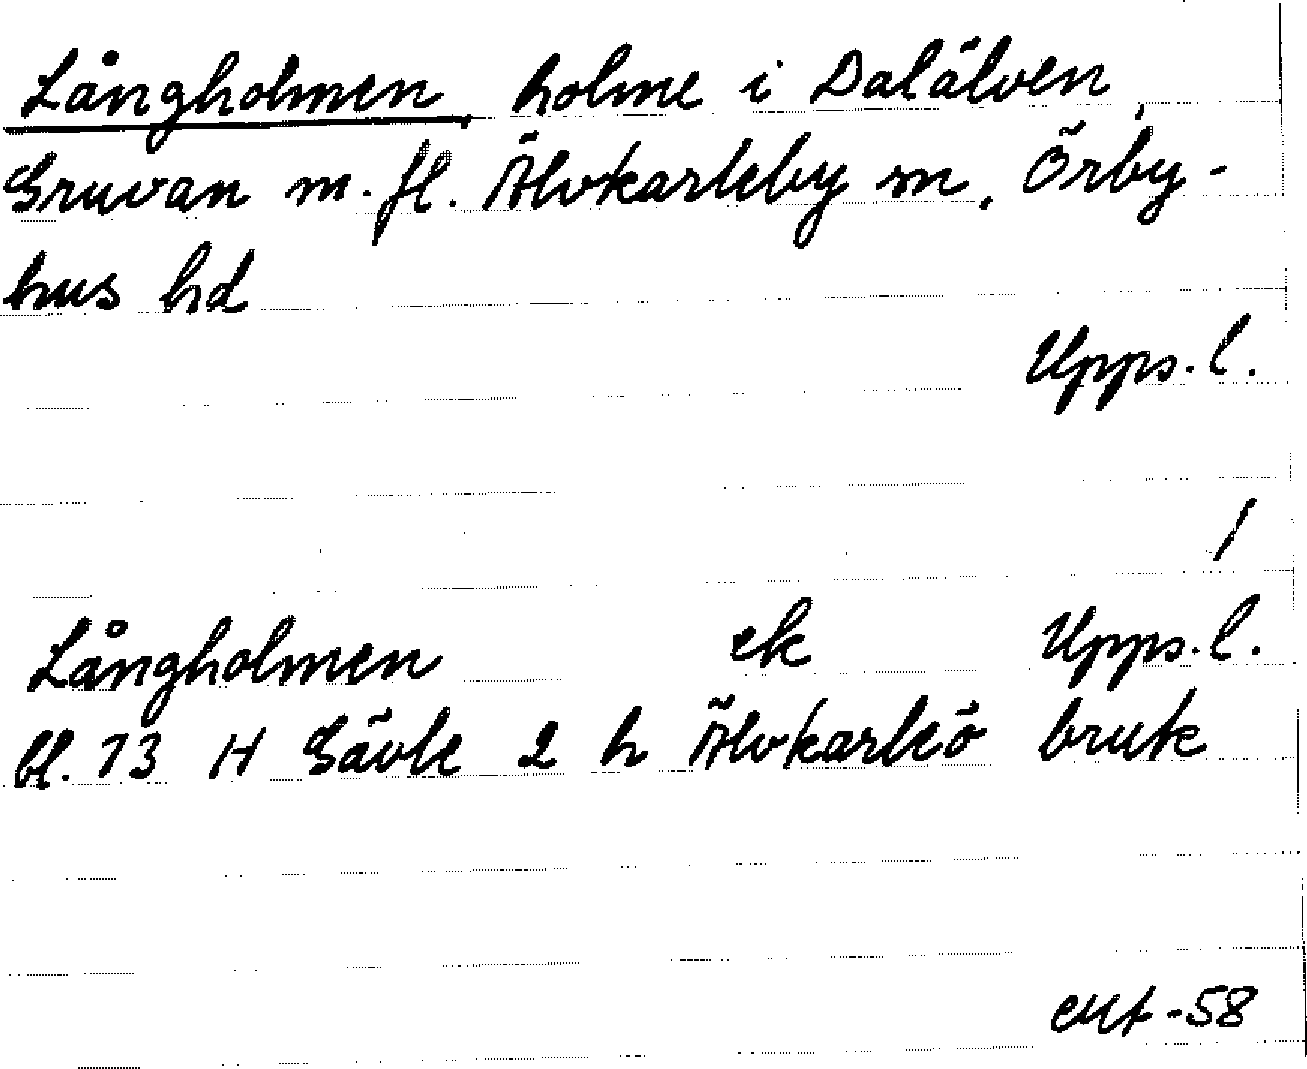 Långholmen, holme i Dalälven,
Gruvan m.fl. Älvkarleby sn, Örby-
hus hd
Upps.l.
/
Långholmen ek Upps.l.
bl. 13 H Gävle 2 h Älvkarleö bruk
-58